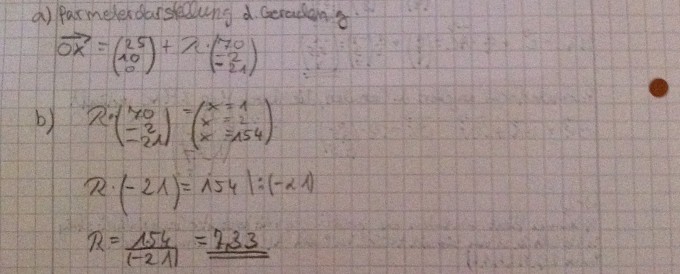 a) Parmeterdarstellung d. Geraden g.
→
OX = (25 10 0) + R · (70 -2 -21)
b) R · (70 -2 -21) = (x = 1 x = 2 x = 154)
R · (-21) = 154 | : (-21)
R = 154 / (-21) = 7,33